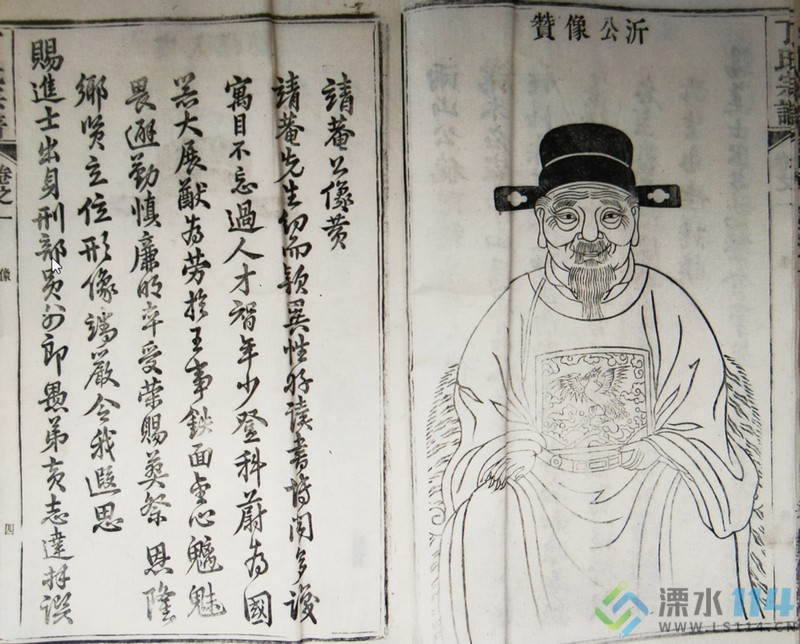 沂公像贊
丁氏宗譜
靖菴公像贊
靖菴先生幼而穎異性好讀書博聞多
寓目不忘過人才智年少登科蔚為國
器大展猷為勞於王事鉄面心魑魅
畏避勤慎廉明卒受榮賜葬祭 恩隆
鄉賢立位形像端嚴令我遐思
賜進士出身刑部員外郎愚弟黃志達拜撰
卷之一
像
四
溧水114
WWW.LS114.CN